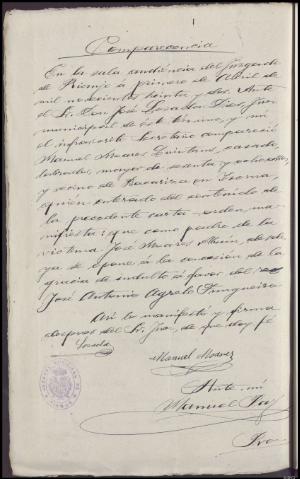 Comparecencia
En la sala audiencia del Juzgado
de Rianjo á primero de Abril de
mil novecientos treinta y dos. Ante
el Sr. Don José Losada Diaz, Juez
municipal de este término, y mi
el infrascrito Secretario compareció
Manuel Moares Quintans, casado,
labrador, mayor de edad y
y vecino de en Isorna,
quien enterado del contenido de
la precedente carta-orden, ma-
nifiesta: que como padre de la
victima José Moares desde
ya se opone á la concesión de la
gracia de indulto á favor del
José Antonio Agrelo Tungueira
Asi lo manifesta y firma
despues del Sr. Juez, de que doy fé
Losada
Manuel Moares
Ante mi
Manuel